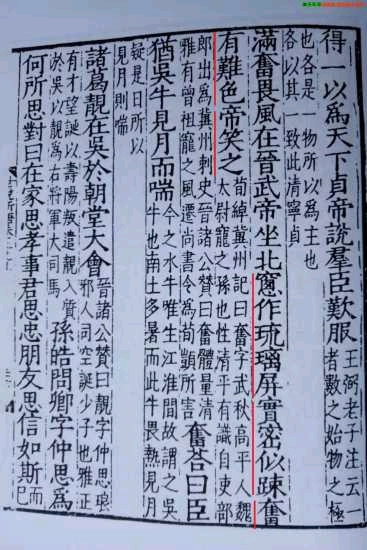 得一以爲天下貞帝說羣臣歎服
王弼老子注云一
者數之始物之極
也各是一物所以爲主也
各以其一致此清寧貞
滿奮畏風在晉武帝坐北窻作琉璃屏實密似踈奮
有難色帝笑之
荀綽冀州記曰奮字武秋高平人魏
太尉寵之孫也性清平有識自吏部
郎出爲冀州刺史晉諸公贊曰奮體量清
雅有曾祖寵之風遷尚書令爲荀顗所害
奮荅曰臣
猶吳牛見月而喘
今之水牛唯生江淮間故謂之吳
牛也南土多暑而此牛畏熱見月
疑是日所以
見月則喘
諸葛靚在吳於朝堂大會
晉諸公贊曰靚字仲思琅
邪人司空誕少子也雅正
有才望誕以壽陽叛遣靚入質
於吳以靚爲右將軍大司馬
孫皓問卿字仲思爲
何所思對曰在家思孝事君思忠朋友思信如斯而已